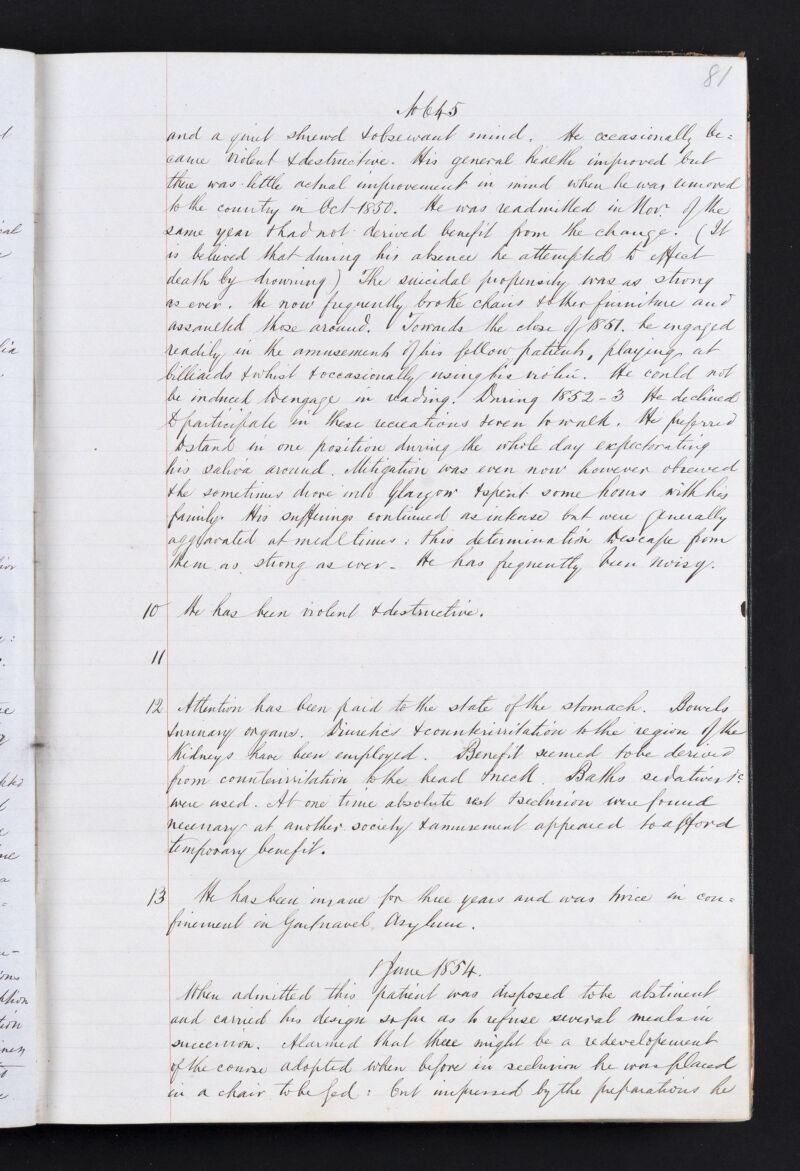 81
No 645
and a quiet shrewd & observant mind. He occasionally be=
came violent & destructive. His general health improved but
there was little actual improvement in mind when he was removed
to the country in Oct 1850. He was readmitted in Nov. of the
same year & had not derived benefit from the change. (It
is believed that during his absence he attempted to effect
death by drowning) The suicidal propensity was as strong
as ever. He now frequently broke chairs & other furniture and
assaulted those around. Towards the close of 1851. he engaged
readily in the amusements of his fellow patients, playing at
billiards & whist & occasionally using his violin. He could not
be induced to engage in reading. During 1852-3 He declined
to participate in these recreations & even to walk. He preferred
to stand in one position during the whole day expectorating
his saliva around. Mitigation was even now however observed
& he sometimes drove into Glasgow & spent some hours with his
family. His sufferings continued as intense but were generally
aggravated at meal times: this determination to escape from
them as strong as ever - He has frequently been noisy.
10 He has been violent & destructive.
11
12 Attention has been paid to the state of the stomach. Bowels
& urinary organs. Diuretics & counterirritation to the region of the
Kidneys have been employed. Benefit seemed to be derived
from counterirritation to the head & neck. Baths sedatives &c
were used. At one time absolute rest & seclusion were found
necessary at another society & amusement appeared to afford
temporary benefit.
13 He has been insane for three years and was twice in con=
finement in Gartnavel Asylum.
1 June 1854.
When admitted this patient was disposed to be abstinent
and carried his design so far as to refuse several meals in
succession. Alarmed that there might be a redevelopement
of the course adopted when before in seclusion he was placed
in a chair to be fed: but impressed by the preparations he